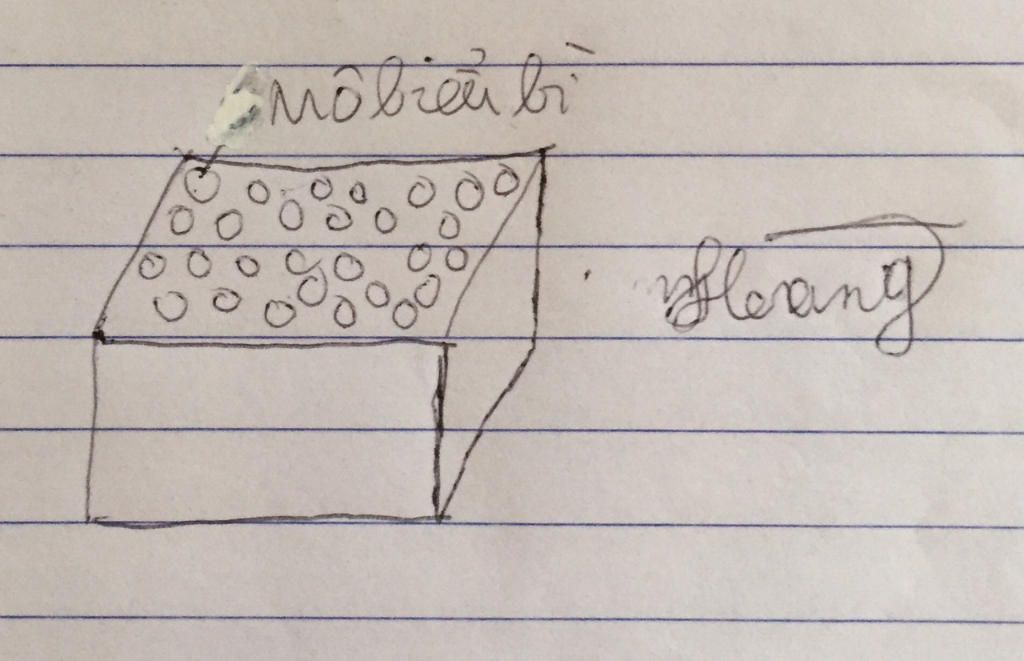 Mô biểu bì
Hoang